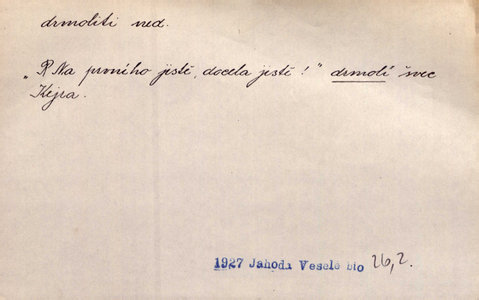 drmoliti ned.
„R Na prvního jistě, docela jistě!" drmolí švec
Kejra.
1927 Jahoda Veselé bio 26,2.